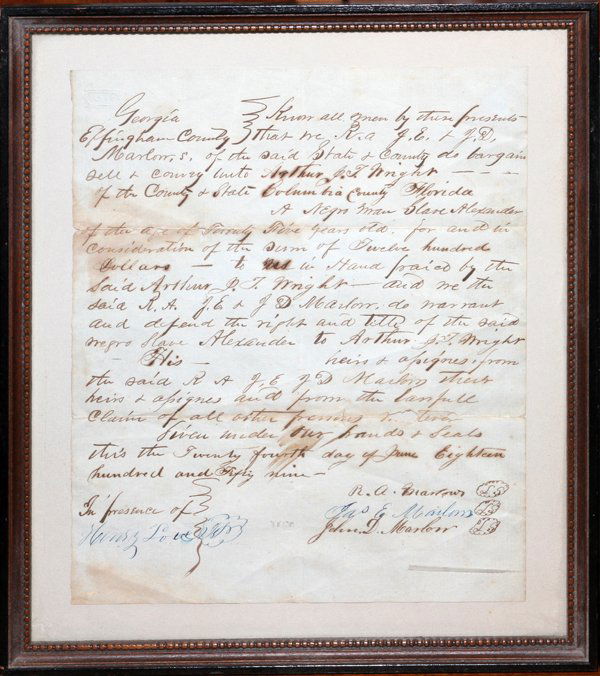 Georgia Know all men by these presents
Effingham County that we R. A J. E. & J. D.
Marlow, s, of the said State & County do bargain
sell & convey unto Arthur J. T. Wright
of the County & State Columbia County Florida
A Negro man Slave Alexander
of the age of Twenty Five years old. for and in
consideration of the sum of Twelve hundred
Dollars to us in Hand paid by the
said Arthur J. T. Wright and we the
said R. A. J. E & J D Marlow, do warrant
and defend the right and title of the said
negro slave Alexander to Arthur J. T. Wright
His heirs & assignes from
the said R A J, E, J D Marlow their
heirs & assignes and from the lawfull
Claim of all other persons
Given under our hands & Seals
this the Twenty fourth day of June Eighteen
hundred and Fifty nine
R. A. Marlow L S
In presence of Jas E Marlow L S
Henry John D. Marlow L S